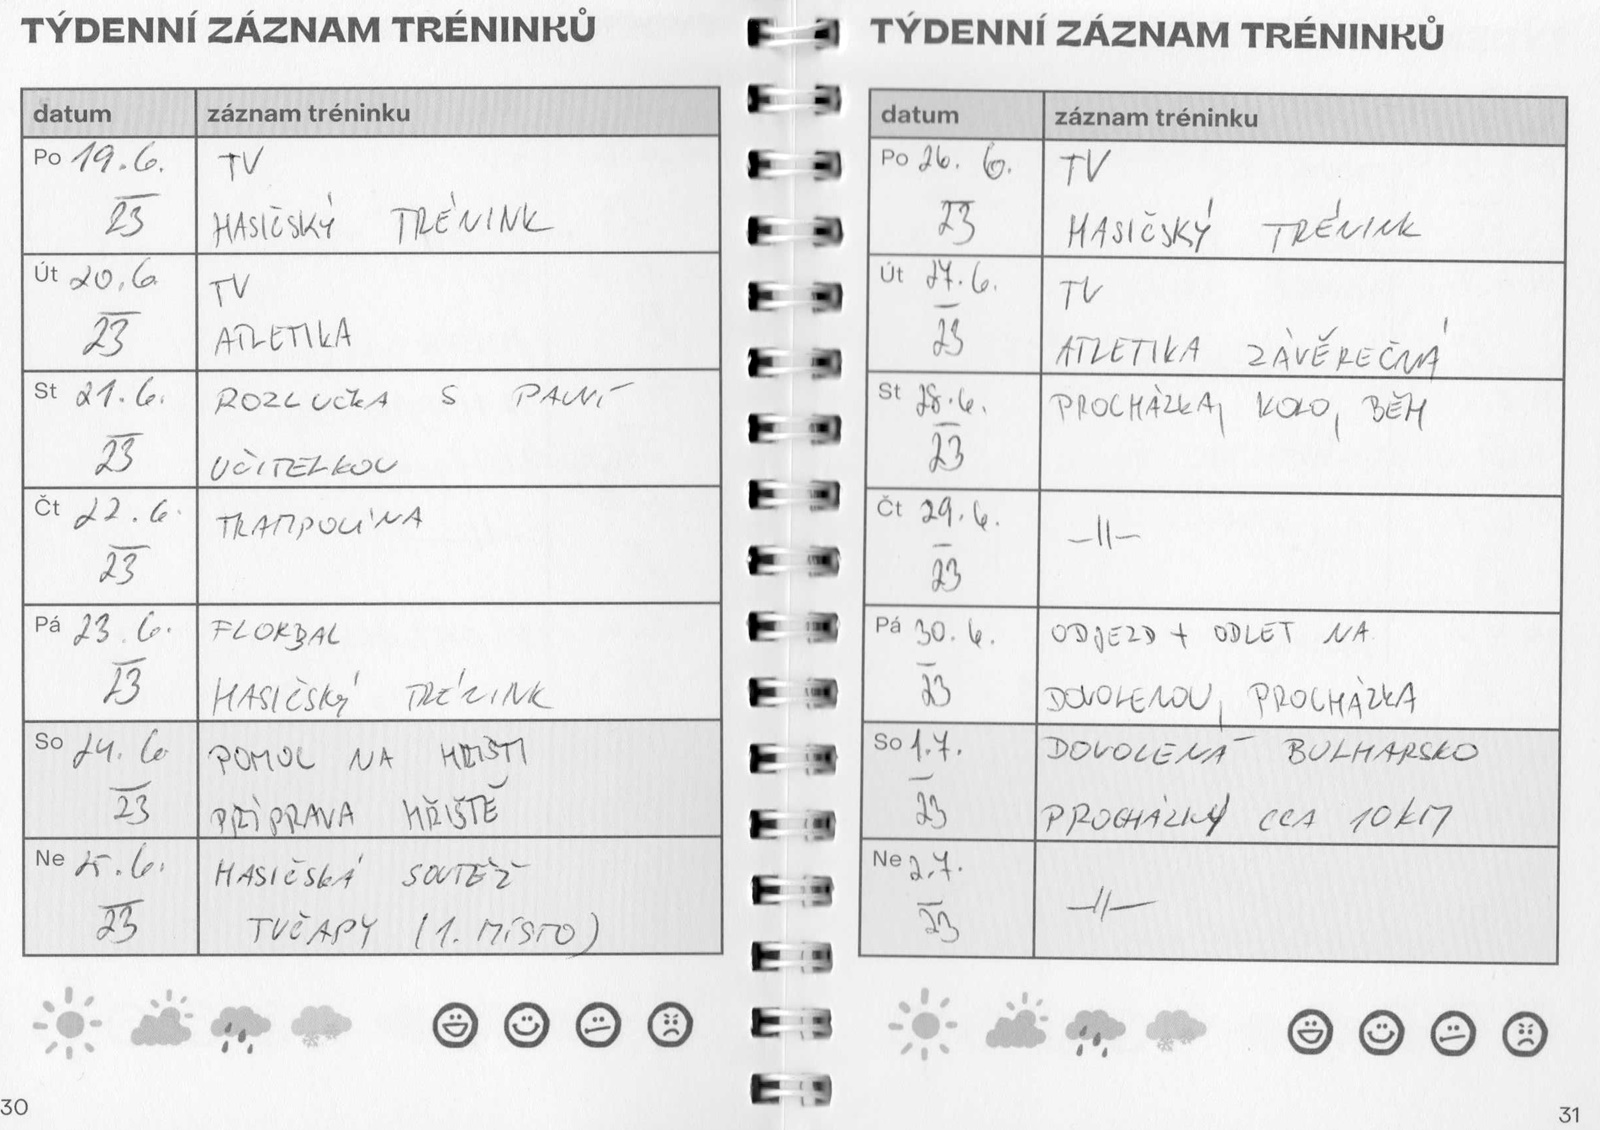 TÝDENNÍ ZÁZNAM TRÉNINKŮ
datum záznam tréninku
Po 19.6. TV
23 HASIČSKÝ TRÉNINK
Út 20.6. TV
23 ATLETIKA
St 21.6. ROZLUČKA S PANÍ
23 UČITELKOU
Čt 22.6. TRAMPOLÍNA
23
Pá 23.6. FLORBAL
23 HASIČSKÝ TRÉNINK
So 24.6 POMOC NA HŘIŠTI
23 PŘÍPRAVA HŘIŠTĚ
Ne 25.6. HASIČSKÁ SOUTĚŽ
23 TUČAPY (1. MÍSTO)
30
TÝDENNÍ ZÁZNAM TRÉNINKŮ
datum záznam tréninku
Po 26. 6. TV
23 HASIČSKÝ TRÉNINK
Út 27.6. TV
23 ATLETIKA ZÁVĚREČNÁ
St 28.6. PROCHÁZKA, KOLO, BĚH
23
Čt 29.6. -||-
23
Pá 30.6. ODJEZD + ODLET NA
23 DOVOLENOU, PROCHÁZKA
So 1.7. DOVOLENÁ BULHARSKO
23 PROCHÁZKY CCA 10KM
Ne 2.7. -||-
23
31